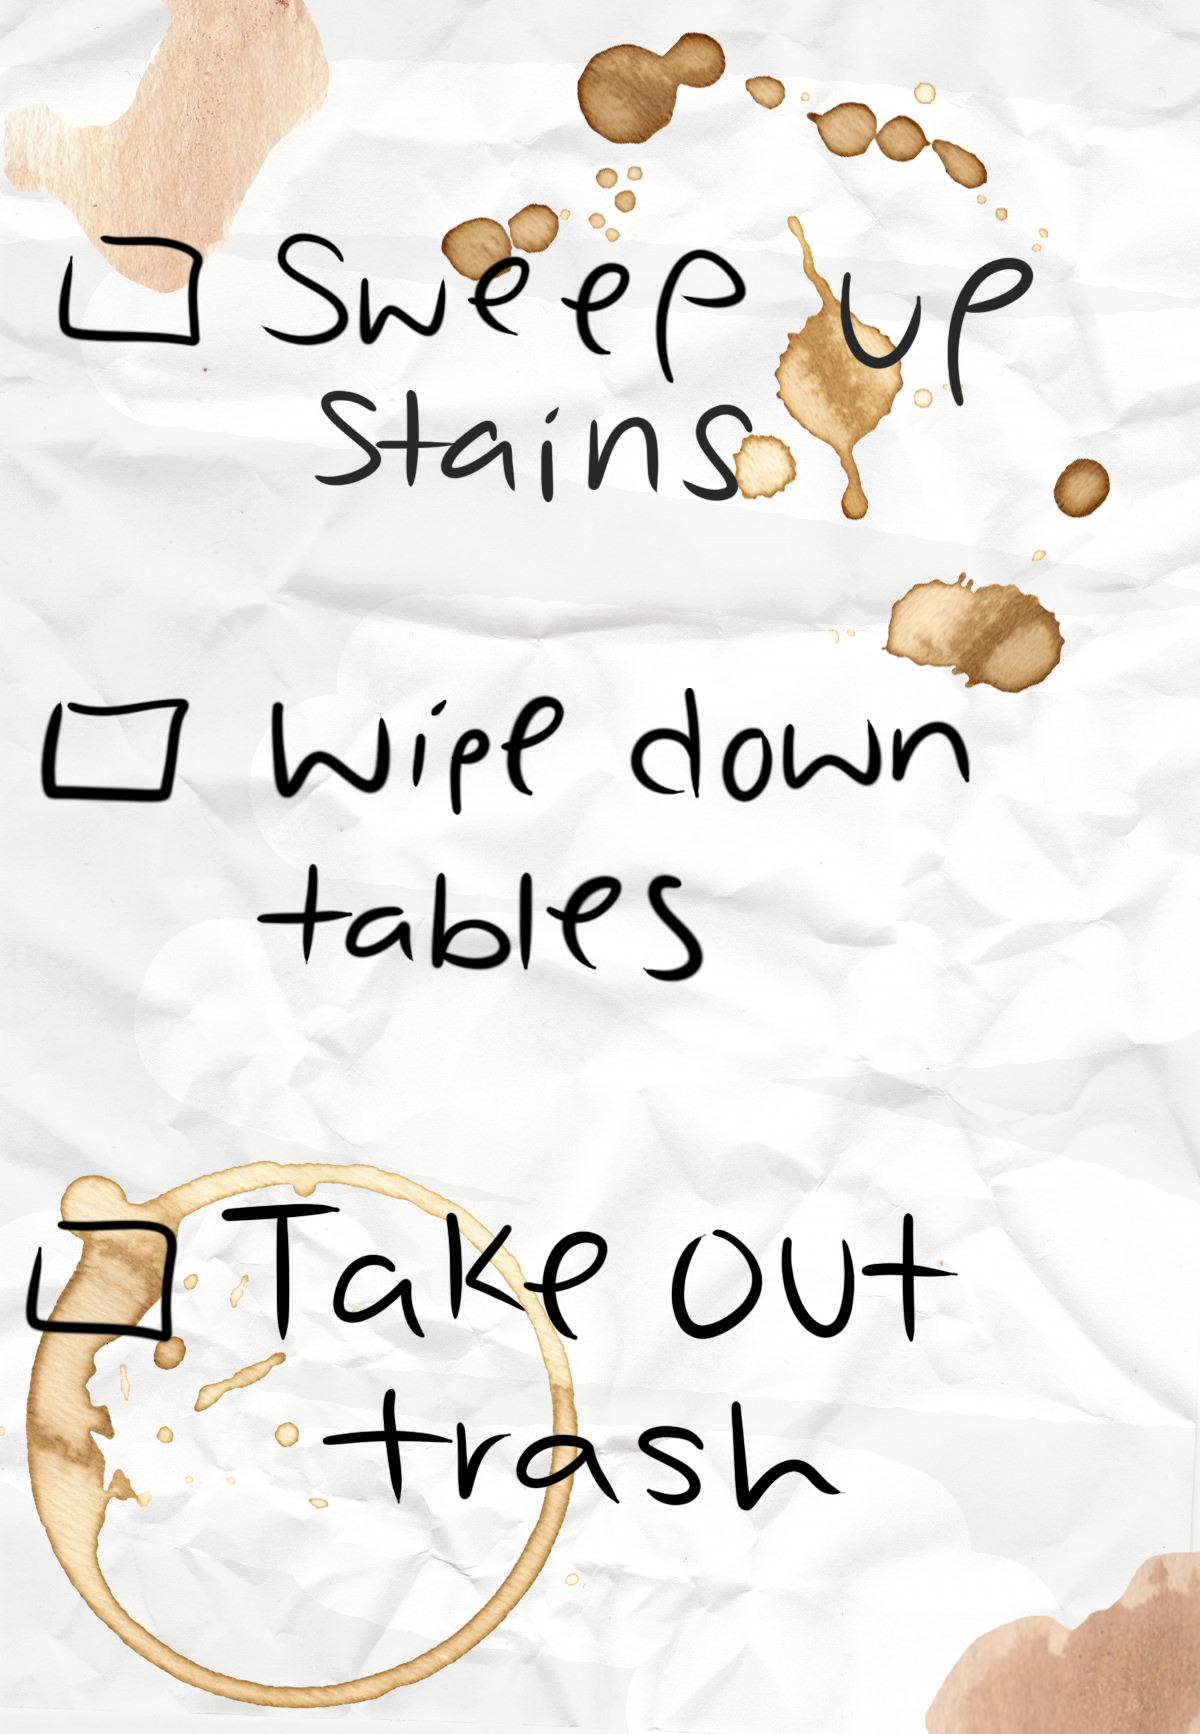 Sweep up
stains
Wipe down
tables
Take out
trash